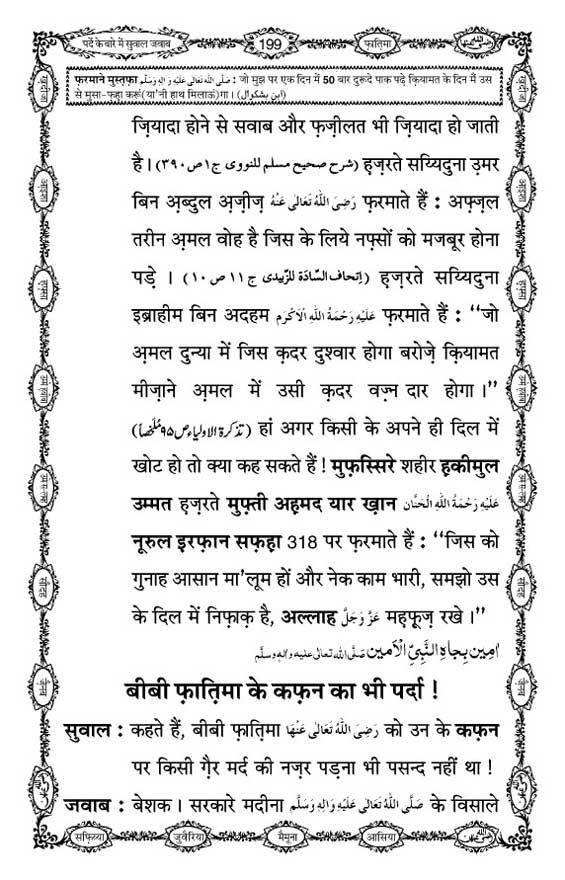 पर्दे के बारे में सुवाल जवाब
199
फ़ातिमा
फ़रमाने मुस्तफ़ा صَلَّى اللهُ تَعَالٰى عَلَيْهِ وَاٰلِهٖ وَسَلَّم : जो मुझ पर एक दिन में 50 बार दुरूदे पाक पढ़े क़ियामत के दिन मैं उस
से मुसा-फ़हा करूं(या'नी हाथ मिलाऊं)गा। (ابن بشکوال)
ज़ियादा होने से सवाब और फ़ज़ीलत भी ज़ियादा हो जाती
है। (شرح صحیح مسلم للنووی ج۱ ص۳۹۰) हज़रते सय्यिदुना उ़मर
बिन अ़ब्दुल अ़ज़ीज़ رَضِىَ اللهُ تَعَالٰى عَنْهُ फ़रमाते हैं : अफ़्ज़ल
तरीन अ़मल वोह है जिस के लिये नफ़्सों को मजबूर होना
पड़े । (اِتحاف السّادَة للزّبیدی ج ۱۱ ص ۱۰) हज़रते सय्यिदुना
इब्राहीम बिन अदहम عَلَيْهِ رَحْمَةُ اللهِ الْاَكْرَم फ़रमाते हैं : ‘‘जो
अ़मल दुन्या में जिस क़दर दुश्वार होगा बरोज़े क़ियामत
मीज़ाने अ़मल में उसी क़दर वज़्न दार होगा।’’
(تذکرۃ الاولیاء ص۹۵ مُلَخّصاً) हां अगर किसी के अपने ही दिल में
खोट हो तो क्या कह सकते हैं ! मुफ़स्सिरे शहीर हकीमुल
उम्मत हज़रते मुफ़्ती अहमद यार ख़ान عَلَيْهِ رَحْمَةُ اللهِ الْحَنَّان
नूरुल इरफ़ान सफ़हा 318 पर फ़रमाते हैं : ‘‘जिस को
गुनाह आसान मा'लूम हों और नेक काम भारी, समझो उस
के दिल में निफ़ाक़ है, अल्लाह عَزَّ وَجَلَّ महफ़ूज़ रखे ।’’
اٰمِين بِجَاهِ النَّبِيِّ الْاَمين صَلَّى الله تعالٰى عليه واٰلهٖ وسلَّم
बीबी फ़ातिमा के कफ़न का भी पर्दा !
सुवाल : कहते हैं, बीबी फ़ातिमा رَضِىَ اللهُ تَعَالٰى عَنْهَا को उन के कफ़न
पर किसी ग़ैर मर्द की नज़र पड़ना भी पसन्द नहीं था !
जवाब : बेशक। सरकारे मदीना صَلَّى اللهُ تَعَالٰى عَلَيْهِ وَاٰلِهٖ وَسَلَّم के विसाले
सफ़िय्या
जुवैरिया
मैमूना
आसिया